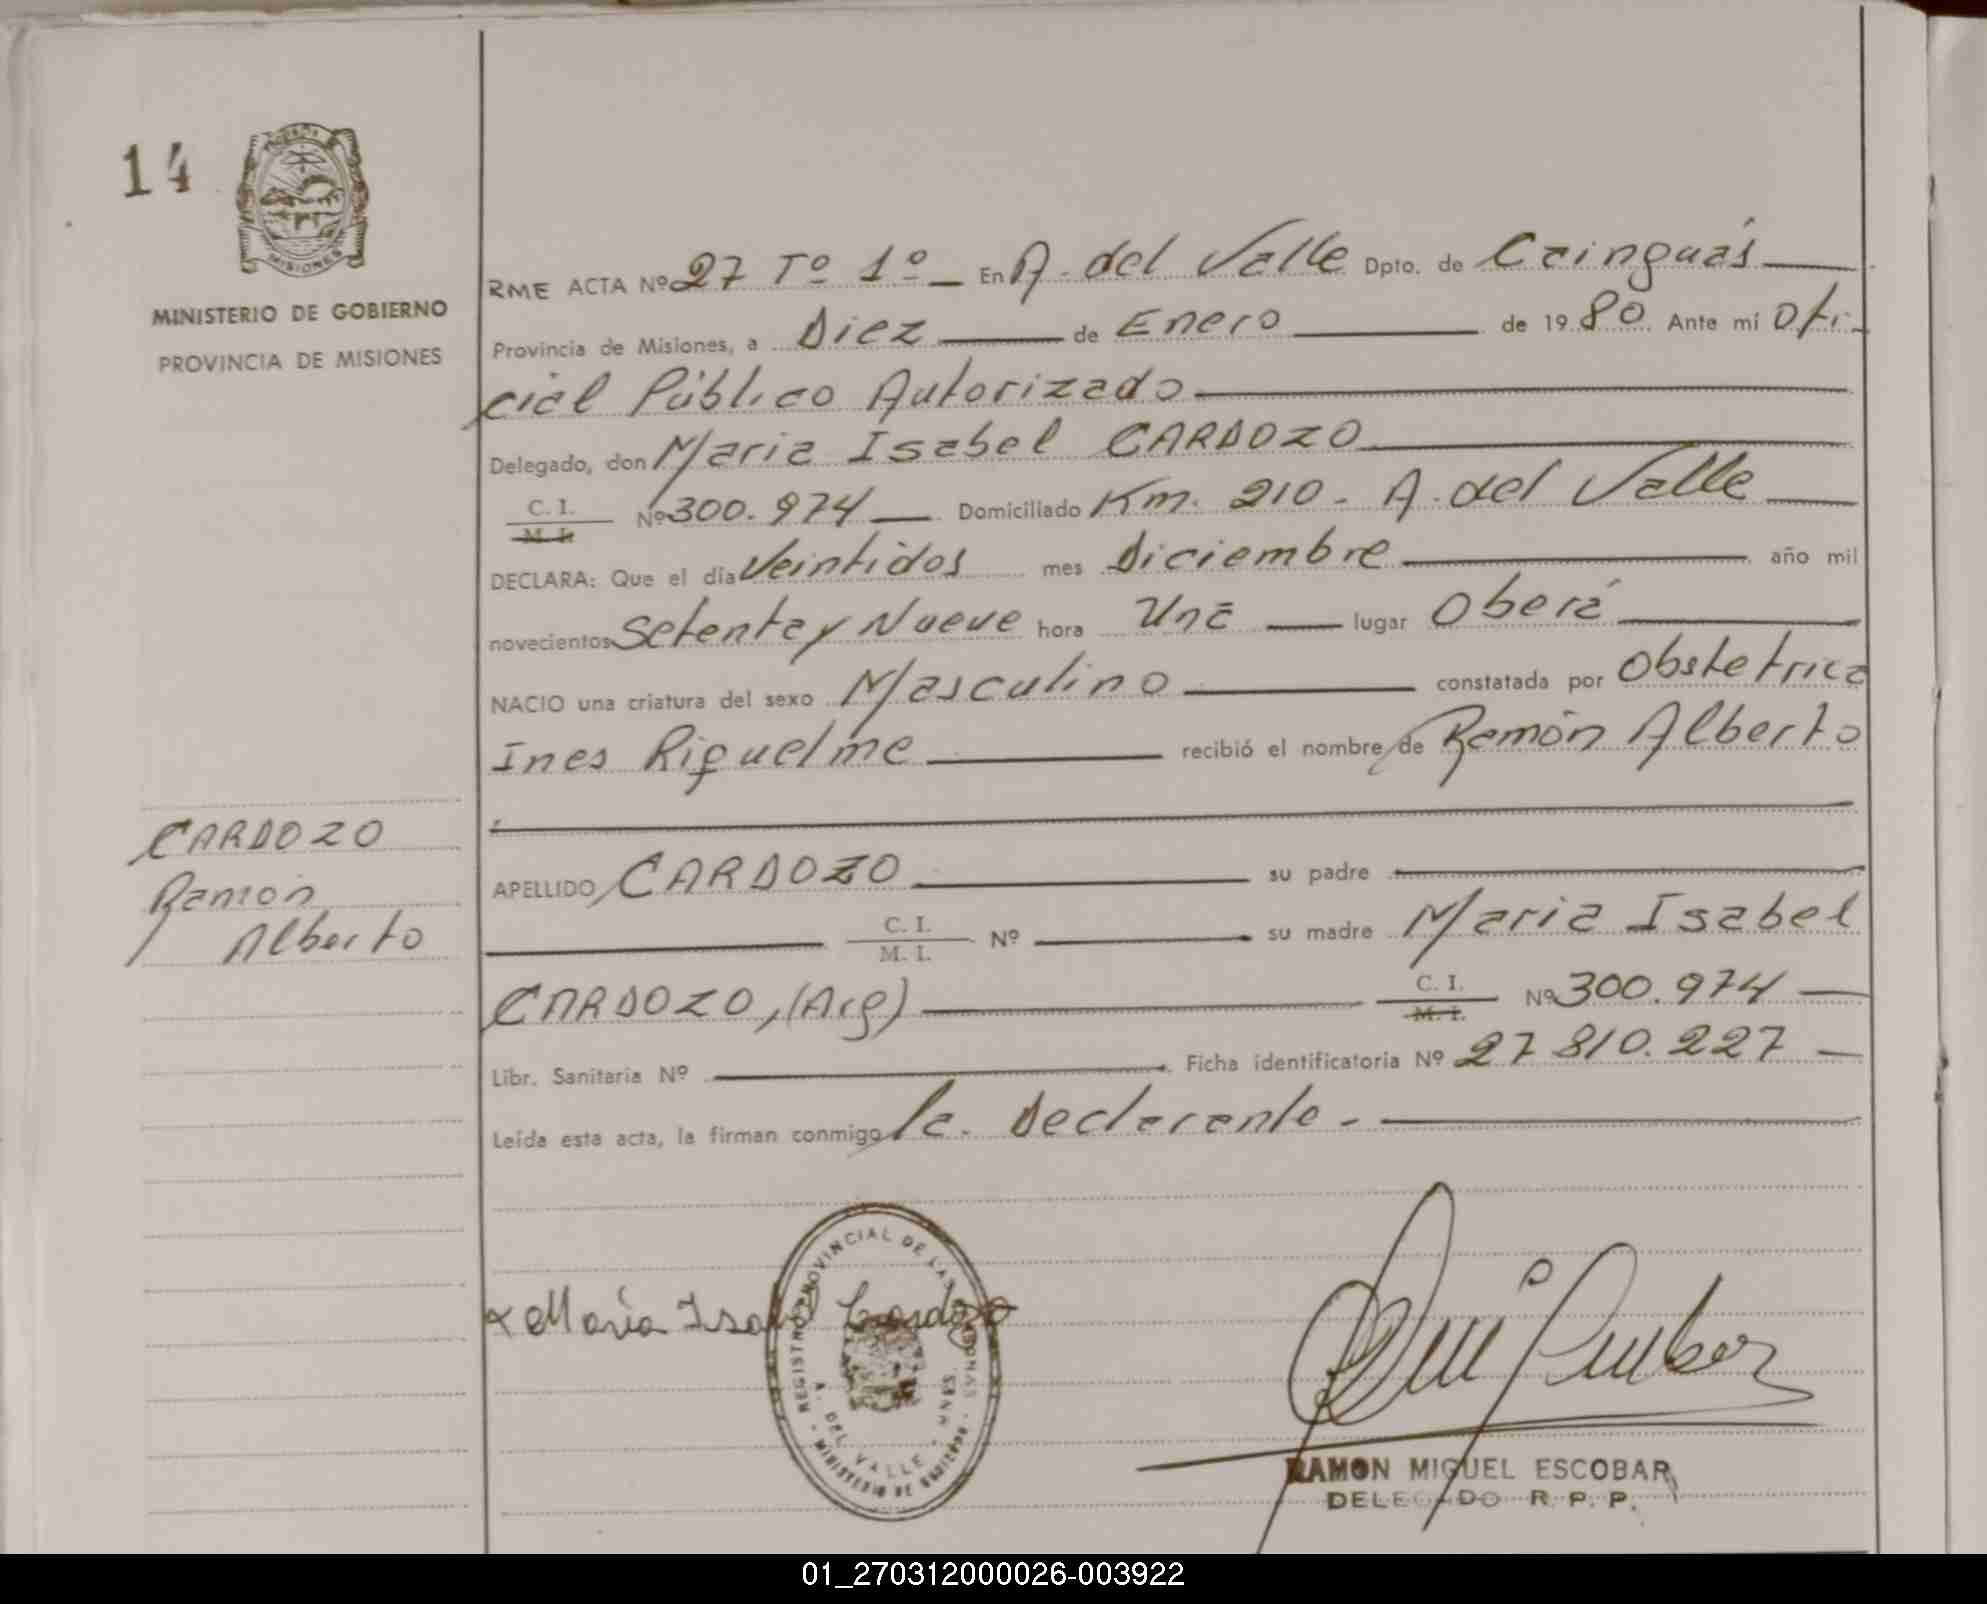 14
MISIONES
MINISTERIO DE GOBIERNO
PROVINCIA DE MISIONES
RME ACTA Nº 27 Tº 1º — En A. del Valle Dpto. de Cainguás
Provincia de Misiones, a Diez de Enero de 1980 Ante mí Ofi-
cial Público Autorizado
Delegado, don Maria Isabel CARDOZO
C. I.
M. I. Nº 300.974 Domiciliado Km. 210 - A. del Valle
DECLARA: Que el día Veintidos mes Diciembre año mil
novecientos Setenta y Nueve hora Una lugar Oberá
NACIO una criatura del sexo Masculino constatada por Obstetrica
Ines Riquelme recibió el nombre de Ramón Alberto
CARDOZO
Ramón
Alberto
APELLIDO CARDOZO su padre
C. I.
M. I. Nº su madre Maria Isabel
CARDOZO, (Arg) C. I.
M. I. Nº 300.974
Libr. Sanitaria Nº Ficha identificatoria Nº 27 810.227
Leída esta acta, la firman conmigo la Declarante.-
REGISTRO PROVINCIAL DE LAS PERSONAS
A. DEL VALLE - MNES.
MINISTERIO DE GOBIERNO
x Maria Isabel Cardozo
RAMON MIGUEL ESCOBAR
DELEGADO R. P. P.
01_270312000026-003922